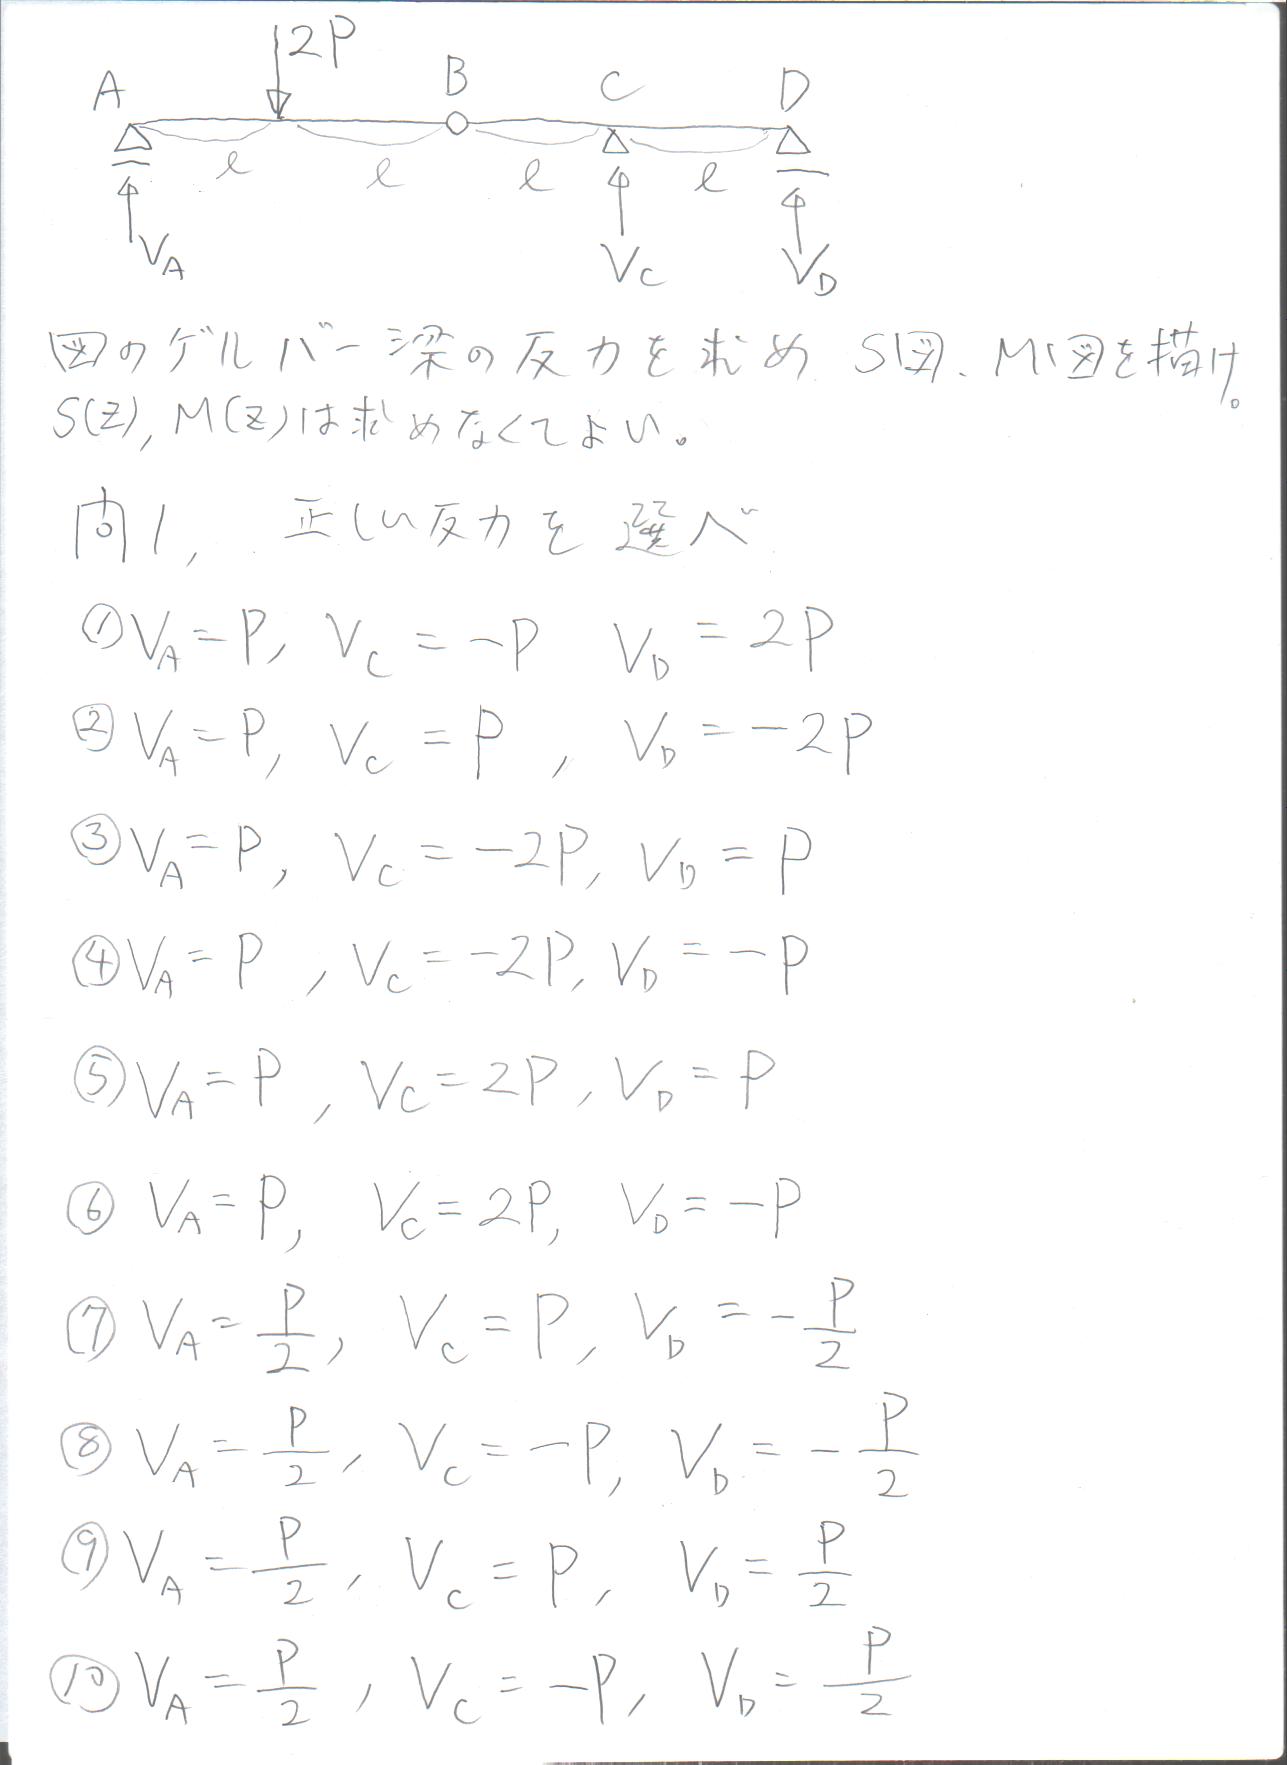 2P
A B C D
l l l l
V_A V_C V_D
図のゲルバー梁の反力を求め S図、M図を描け。
S(z), M(z)は求めなくてよい。
問1, 正しい反力を選べ
① V_A = P, V_C = -P V_D = 2P
② V_A = P, V_C = P, V_D = -2P
③ V_A = P, V_C = -2P, V_D = P
④ V_A = P, V_C = -2P, V_D = -P
⑤ V_A = P, V_C = 2P, V_D = P
⑥ V_A = P, V_C = 2P, V_D = -P
⑦ V_A = P/2, V_C = P, V_D = -P/2
⑧ V_A = P/2, V_C = -P, V_D = -P/2
⑨ V_A = P/2, V_C = P, V_D = P/2
⑩ V_A = P/2, V_C = -P, V_D = P/2